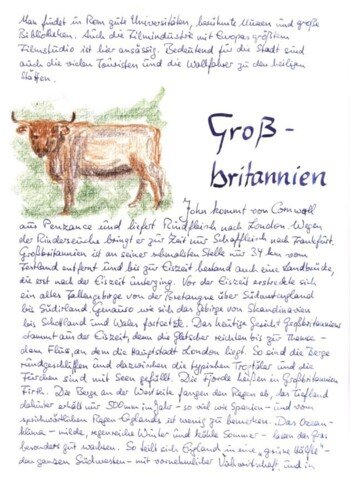 Man findet in Rom gute Universitäten, berühmte Museen und große
Bibliotheken. Auch die Filmindustrie mit Europas größtem
Filmstudio ist hier ansässig. Bedeutend für die Stadt sind
auch die vielen Touristen und die Wallfahrer zu den heiligen
Stätten.
Groß-
britannien
John kommt von Cornwall
aus Penzance und liefert Rindfleisch nach London. Wegen
der Rinderseuche bringt er zur Zeit nur Schaffleisch nach Frankfurt.
Großbritannien ist an seiner schmalsten Stelle nur 34 km vom
Festland entfernt und bis zur Eiszeit bestand auch eine Landbrücke,
die erst nach der Eiszeit unterging. Vor der Eiszeit erstreckte sich
ein altes Faltengebirge von der Bretagne über Südwestengland
bis Südirland. Genauso wie sich das Gebirge von Skandinavien
bis Schottland und Wales fortsetzte. Das heutige Gesicht Großbritanniens
stammt aus der Eiszeit, denn die Gletscher reichten bis zur Themse -
dem Fluss, an dem die Hauptstadt London liegt. So sind die Berge
rundgeschliffen und dazwischen die typischen Trogtäler und die
Furchen sind mit Seen gefüllt. Die Fjorde heißen in Großbritannien
Firth. Die Berge an der Westseite fangen den Regen ab, das Tiefland
dahinter erhält nur 500 mm im Jahr - so viel wie Spanien - und vom
sprichwörtlichen Regen Englands ist wenig zu bemerken. Das Ozean-
klima - milde, regenreiche Winter und kühle Sommer - lassen das Gras
besonders gut wachsen. So teilt sich England in eine "grüne Hälfte"
den ganzen Südwesten - mit vornehmlicher Viehwirtschaft und in